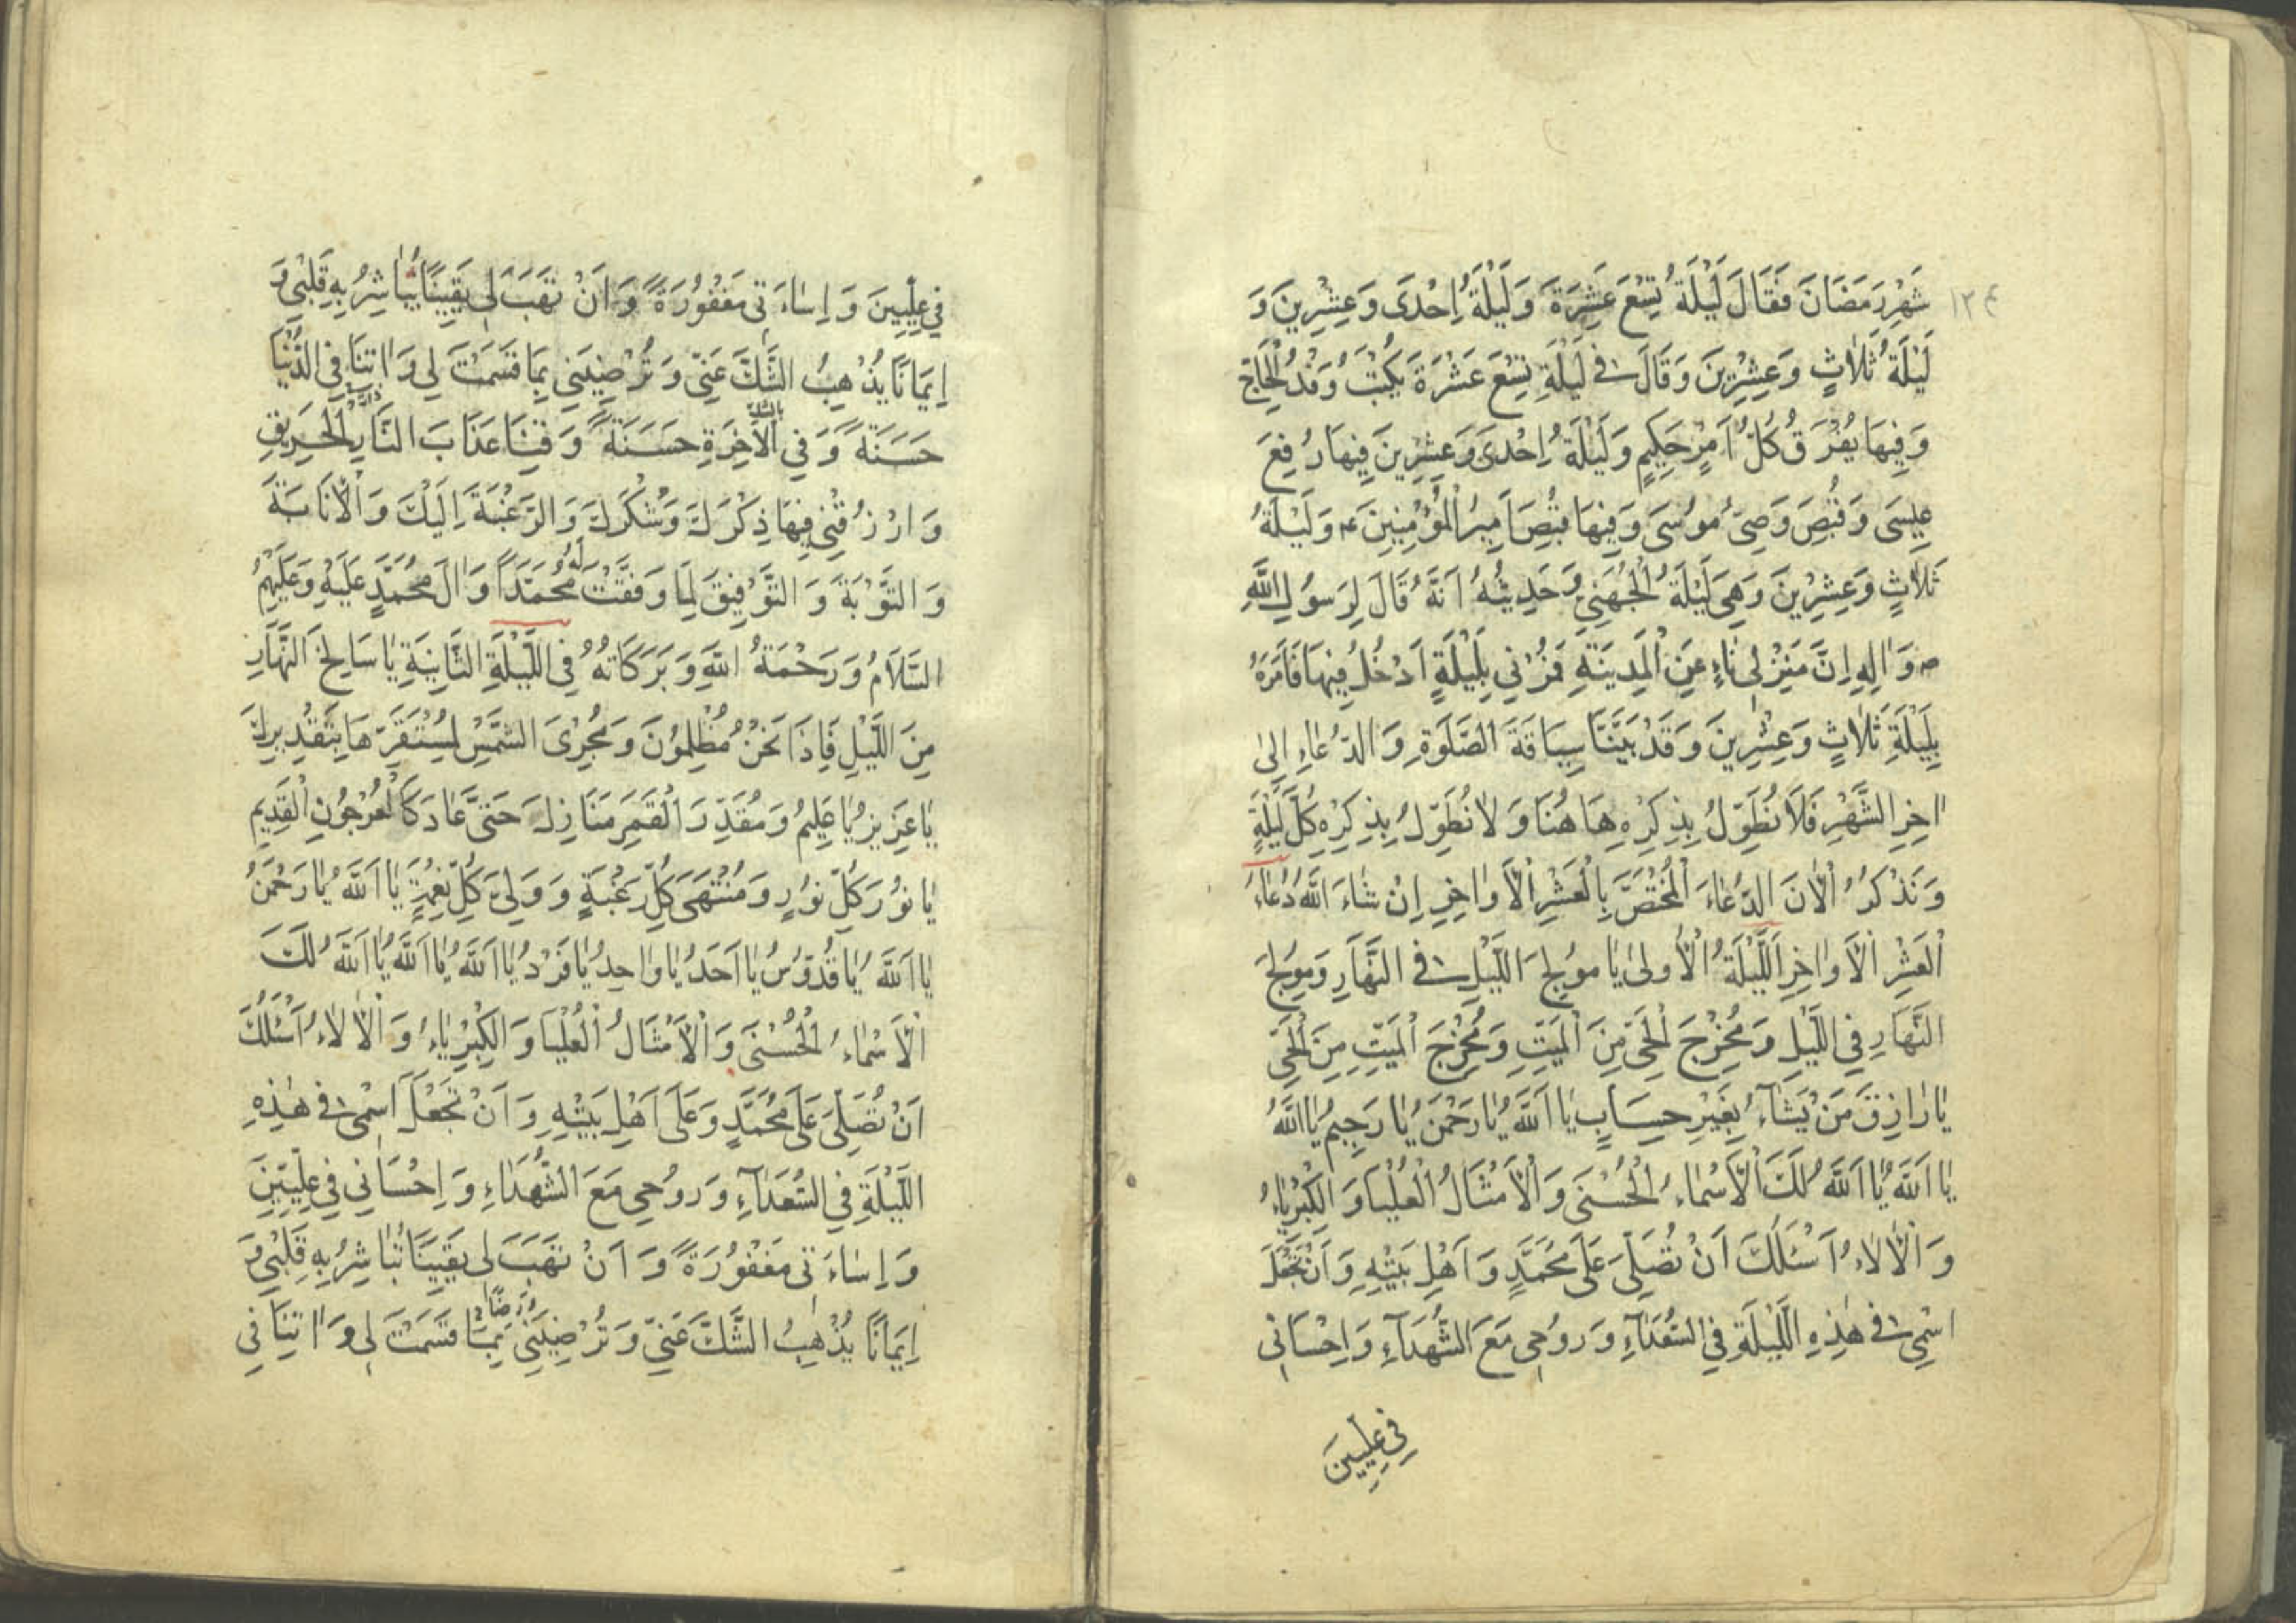 ١٢٤
شَهْرِ رَمَضَانَ فَقَالَ لَيْلَةُ تِسْعَ عَشَرَةَ وَلَيْلَةُ اِحْدَى وَعِشْرِينَ وَ
لَيْلَةُ ثَلاٰثٍ وَعِشْرِينَ وَقَالَ فى لَيْلَةِ تِسْعَ عَشْرَةَ يُكْتَبُ وَفْدُ الْحَاجّ
وَفِيهَا يُفْرَقُ كُلُّ اَمْرٍ حَكِيمٍ وَلَيْلَةُ اِحْدَى وَعِشْرِينَ فِيهَا رُفِعَ
عِيسَى وَقُبِضَ وَصِىُّ مُوسَى وَفِيهَا قُبِضَ اَمِيرُ الْمُؤْمِنِينَ ع وَلَيْلَةُ
ثَلاٰثٍ وَعِشْرِينَ وَهِىَ لَيْلَةُ الْجُهَنِىِّ وَحَدِيثُهُ اَنَّهُ قَالَ لِرَسُولِ اللَّهِ
ص وَاٰلِهِ اِنَّ مَنْزِلى نٰاءٍ عَنِ الْمَدِينَةِ فَمُرْنِى بِلَيْلَةٍ اَدْخُلُ فِيهَا فَاَمَرَهُ
بِلَيْلَةِ ثَلاٰثٍ وَعِشْرِينَ وَقَدْ بَيَّنَّا سِيَاقَةَ الصَّلَوٰةِ وَالدُّعٰاءِ اِلىٰ
اٰخِرِ الشَّهْرِ فَلاَ نُطَوِّلُ بِذِكْرِهِ هَاهُنَا وَلاٰ نُطَوِّلُ بِذِكْرِهِ كُلَّ لَيْلَةٍ
وَنَذْكُرُ الْاٰنَ الدُّعٰاءَ الْمُخْتَصَّ بِالْعَشْرِ الْاَوٰاخِرِ اِنْ شٰاءَ اللَّهُ دُعٰاءُ
الْعَشْرِ الْاَوٰاخِرِ اَللَّيْلَةُ الْاُولىٰ يٰا مُولِجَ اللَّيْلِ فى النَّهَارِ وَمُولِجَ
النَّهَارِ فِى اللَّيْلِ وَمُخْرِجَ الْحَىِّ مِنَ الْمَيِّتِ وَمُخْرِجَ الْمَيِّتِ مِنَ الْحَىِّ
يٰا رٰازِقَ مَنْ يَشٰآءُ بِغَيْرِ حِسَابٍ يٰا اَللَّهُ يٰا رَحْمٰنُ يٰا رَحِيمُ يٰا اَللَّهُ
يٰا اَللَّهُ يٰا اَللَّهُ لَكَ الْاَسْمٰاءُ الْحُسْنَى وَالْاَمْثَالُ الْعُلْيَا وَالْكِبْرِيٰاءُ
وَالْاٰلاٰءُ اَسْئَلُكَ اَنْ تُصَلِّىَ عَلَى مُحَمَّدٍ وَاَهْلِ بَيْتِهِ وَاَنْ تَجْعَلَ
اسْمِى فى هٰذِهِ اللَّيْلَةِ فِى السُّعَدَآءِ وَرُوحِى مَعَ الشُّهَدَآءِ وَاِحْسَانِى
فِى عِلِّيِّينَ
فِى عِلِّيِّينَ وَاِسٰاءَتِى مَغْفُورَةً وَاَنْ تَهَبَ لِى يَقِينًا تُبٰاشِرُ بِهِ قَلْبِى وَ
اِيمَانًا يُذْهِبُ الشَّكَّ عَنِّى وَتُرْضِيَنِى بِمَا قَسَمْتَ لِى وَاٰتِنَا فِى الدُّنْيَا
حَسَنَةً وَفِى الْاٰخِرَةِ حَسَنَةً وَقِنَا عَذَابَ النَّارِ الْحَرِيقِ
وَارْزُقْنِى فِيهَا ذِكْرَكَ وَشُكْرَكَ وَالرَّغْبَةَ اِلَيْكَ وَالْاِنَابَةَ
وَالتَّوْبَةَ وَالتَّوْفِيقَ لِمَا وَفَّقْتَ لَهُ مُحَمَّدًا وَاٰلَ مُحَمَّدٍ عَلَيْهِ وَعَلَيْهِمُ
السَّلاَمُ وَرَحْمَةُ اللَّهِ وَبَرَكَاتُهُ فِى اللَّيْلَةِ الثَّانِيَةِ يٰا سَالِخَ النَّهَارِ
مِنَ اللَّيْلِ فَاِذَا نَحْنُ مُظْلِمُونَ وَمُجْرِىَ الشَّمْسِ لِمُسْتَقَرِّهَا بِتَقْدِيرِكَ
يٰا عَزِيزُ يٰا عَلِيمُ وَمُقَدِّرَ الْقَمَرِ مَنَازِلَ حَتَّى عَادَ كَالْعُرْجُونِ الْقَدِيمِ
يٰا نُورَ كُلِّ نُورٍ وَمُنْتَهَى كُلِّ رَغْبَةٍ وَوَلِىَّ كُلِّ نِعْمَةٍ يٰا اَللَّهُ يٰا رَحْمٰنُ
يٰا اَللَّهُ يٰا قُدُّوسُ يٰا اَحَدُ يٰا وٰاحِدُ يٰا فَرْدُ يٰا اَللَّهُ يٰا اَللَّهُ يٰا اَللَّهُ لَكَ
الْاَسْمٰاءُ الْحُسْنَى وَالْاَمْثَالُ الْعُلْيَا وَالْكِبْرِيٰاءُ وَالْاٰلاٰءُ اَسْئَلُكَ
اَنْ تُصَلِّىَ عَلَى مُحَمَّدٍ وَعَلَى اَهْلِ بَيْتِهِ وَاَنْ تَجْعَلَ اسْمِى فى هٰذِهِ
اللَّيْلَةِ فِى السُّعَدَآءِ وَرُوحِى مَعَ الشُّهَدَاءِ وَاِحْسَانِى فِى عِلِّيِّينَ
وَاِسٰاءَتِى مَغْفُورَةً وَاَنْ تَهَبَ لِى يَقِينًا تُبٰاشِرُ بِهِ قَلْبِى وَ
اِيمَانًا يُذْهِبُ الشَّكَّ عَنِّى وَتُرْضِيَنِى بِمَا قَسَمْتَ لِى وَاٰتِنَا فِى